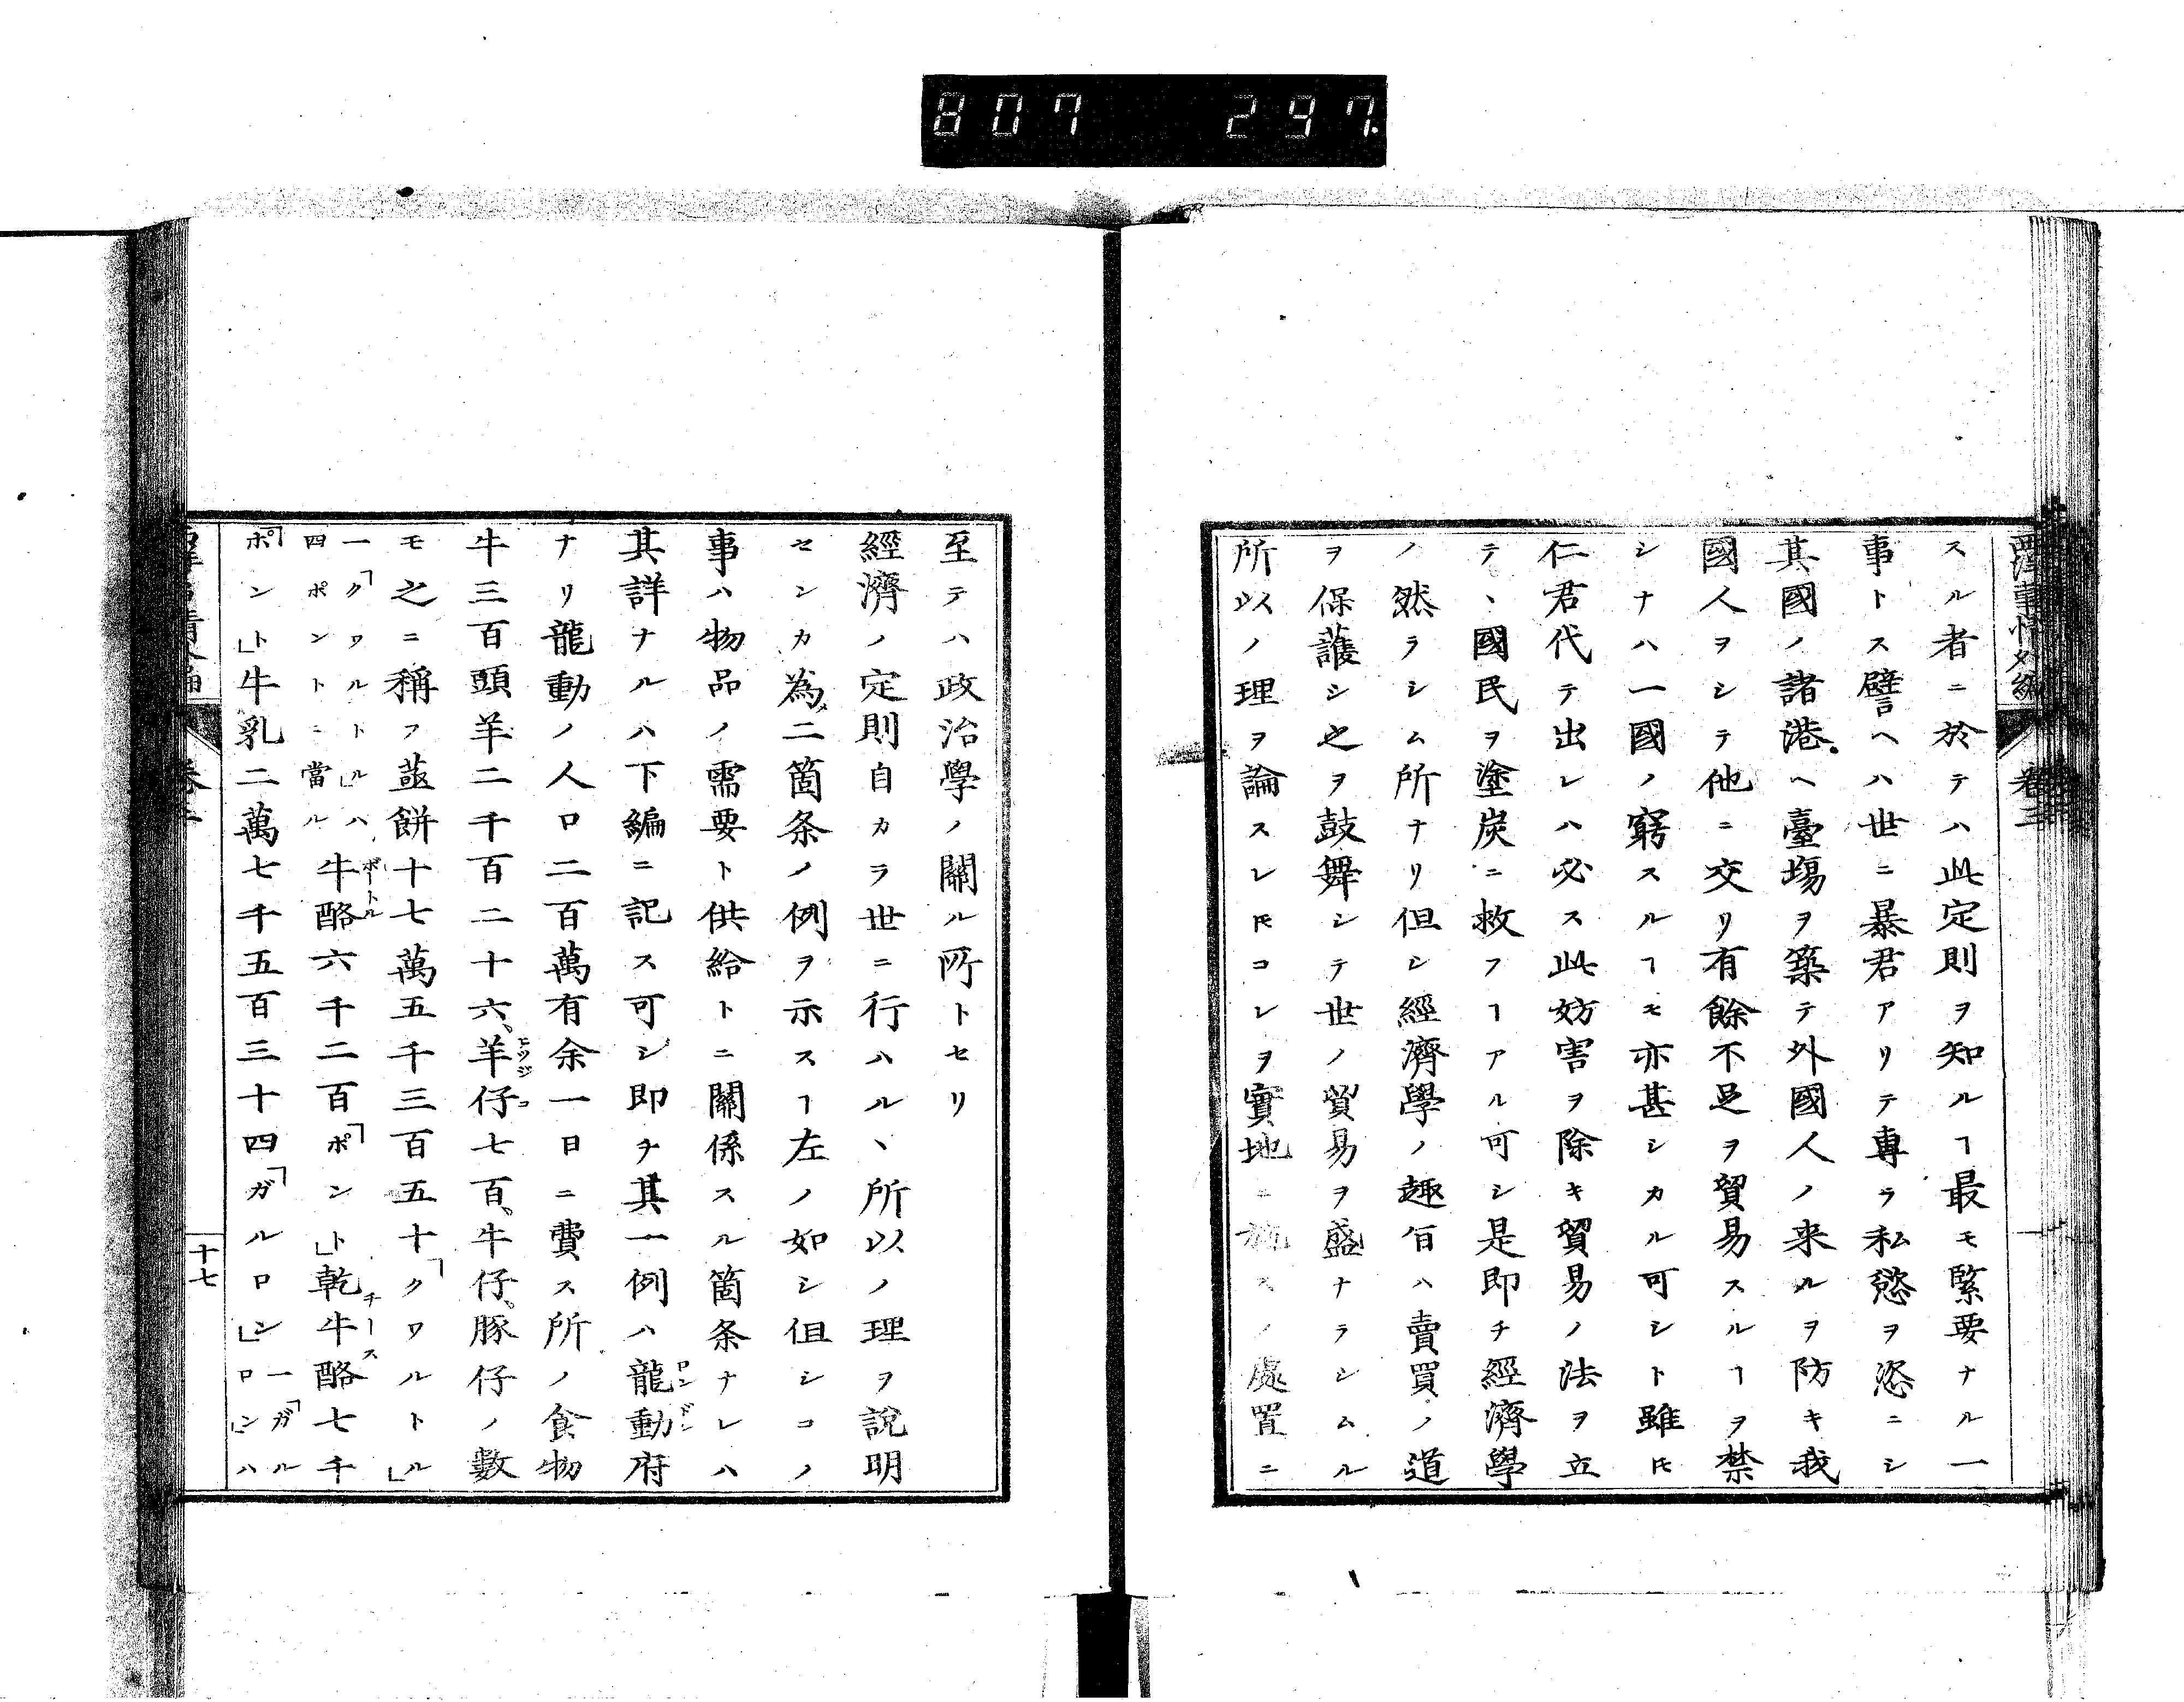 807 297.
西洋事情外編 卷三
スル者ニ於テハ此定則ヲ知ルヿ最モ緊要ナル一
事トス譬ヘハ世ニ暴君アリテ專ラ私慾ヲ恣ニシ
其國ノ諸港ヘ臺塲ヲ築テ外國人ノ来ルヲ防キ我
國人ヲシテ他ニ交リ有餘不足ヲ貿易スルヿヲ禁
シナハ一國ノ窮スルヿモ亦甚シカル可シト雖𪜈
仁君代テ出レハ必ス此妨害ヲ除キ貿易ノ法ヲ立
テヽ國民ヲ塗炭ニ救フヿアル可シ是即チ經濟學
ノ然ラシム所ナリ但シ經濟學ノ趣旨ハ賣買ノ道
ヲ保護シ之ヲ鼓舞シテ世ノ貿易ヲ盛ナラシムル
所以ノ理ヲ論スレ𪜈コレヲ實地ニ施スノ處置ニ
至テハ政治學ノ關ル所トセリ
經濟ノ定則自カラ世ニ行ハルヽ所以ノ理ヲ說明
センカ為メ二箇条ノ例ヲ示スヿ左ノ如シ但シコノ
事ハ物品ノ需要ト供給トニ關係スル箇条ナレハ
其詳ナルハ下編ニ記ス可シ即チ其一例ハ龍動府
ロンドン
ナリ龍動ノ人口二百萬有余一日ニ費ス所ノ食物
牛三百頭羊二千百二十六。羊仔七百。牛仔。豚仔ノ數
ヒツジコ
モ之ニ稱フ蒸餅十七萬五千三百五十「クワルトル」
一「クワルトル」ハ
四ポントニ當ル
牛酪六千二百「ポント」乾牛酪七千
ボートル
チース
「ポント」牛乳二萬七千五百三十四「ガルロン」
一「ガル
ロン」ハ
十七